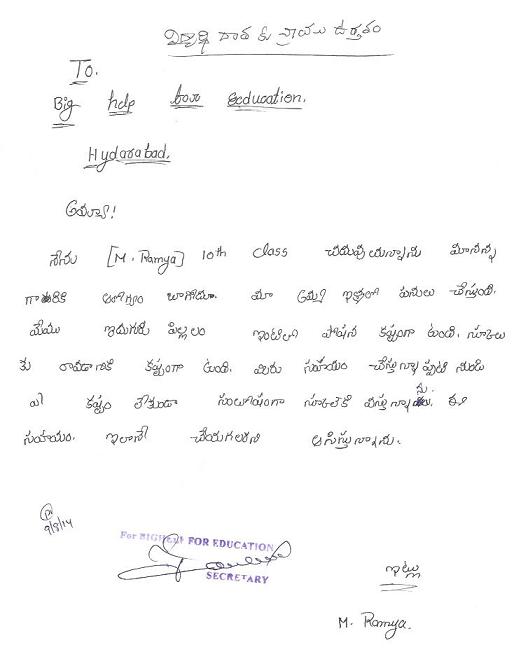 విద్యార్థి దాత కు వ్రాయు ఉత్తరం
To.
Big help for Education.
Hydarabad.
అయ్యా!
నేను [M. Ramya] 10th class చదువుచున్నాను మానాన్న
గారికి ఆరోగ్యం బాగోదు. మా అమ్మ ఇళ్లలో పనులు చేస్తుంది.
మేము ఇద్దురు పిల్లలం ఇంటిలో పోషన కష్టంగా ఉంది. స్కూలు
కు రావడానికి కష్టంగా ఉంది. మీరు సహాయం చేస్తున్నాప్పటి నుండి
ఏ కష్టం లేకుండా సులభంగా స్కూల్ కి వస్తున్నాను. ఈ
సహాయం. ఇలానే చేయగలరని ఆసిస్తున్నాను.
9/8/14
For BIGHELP FOR EDUCATION
SECRETARY
ఇట్లు
M. Ramya.